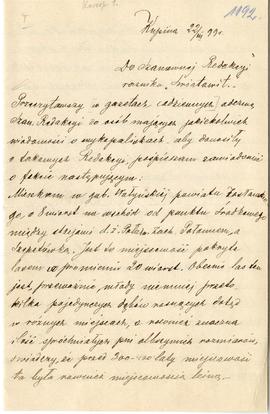 1192.
I
Kupina 22/III 99 r.
Do Szanownej Redakcyi
rocznika „Światowit”.
Przeczytawszy w gazetach codziennych odezwę
Szan. Redakcyi do osób mających jakiekolwiek
wiadomości o wykopaliskach, aby donosiły
o takowych Redakcyi, pospieszam zawiadomić
o fakcie następującym:
Mieszkam w gub. Wołyńskiej powiatu Zasławskiego
go, o 8 wiorst na wschód od punktu środkowego
między stacjami d. ż. Połud. Zach. Połonnem, a
Szepetówką. Jest to miejscowość pokryta
lasem w promieniu 20 wiorst. Obecnie las ten
jest przeważnie młody niemniej przeto
kilka pojedynczych dębów rosnących dotąd
w różnych miejscach, a również znaczna
ilość spróchniałych pni olbrzymich rozmiarów,
świadczy, iż przed 300-400 laty miejscowość
ta była również miejscowością leśną.